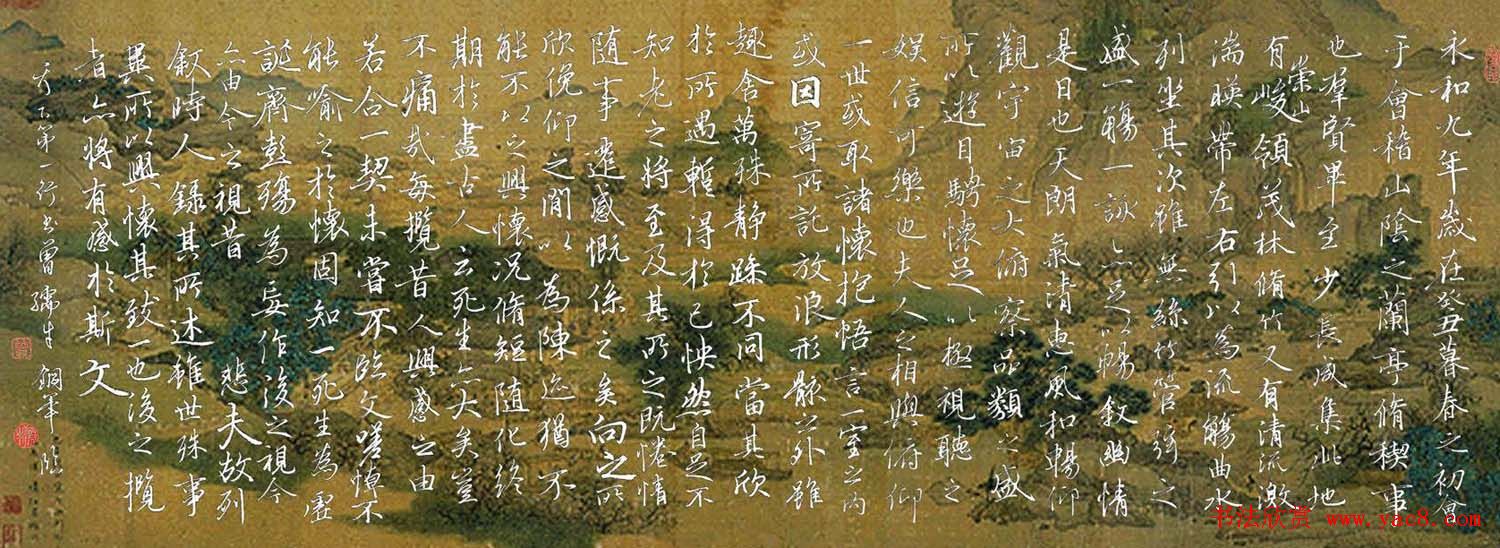 永和九年歲在癸丑暮春之初會
于會稽山陰之蘭亭脩稧事
也羣賢畢至少長咸集此地
有崇山峻領茂林脩竹又有清流激
湍暎帶左右引以為流觴曲水
列坐其次雖無絲竹管弦之
盛一觴一詠亦足以暢敘幽情
是日也天朗氣清惠風和暢仰
觀宇宙之大俯察品類之盛
所以遊目騁懷足以極視聽之
娛信可樂也夫人之相與俯仰
一世或取諸懷抱悟言一室之內
或因寄所託放浪形骸之外雖
趣舍萬殊靜躁不同當其欣
於所遇暫得於己怏然自足不
知老之將至及其所之既惓情
隨事遷感慨係之矣向之所
欣俛仰之閒以為陳迹猶不
能不以之興懷況脩短隨化終
期於盡古人云死生亦大矣豈
不痛哉每攬昔人興感之由
若合一契未嘗不臨文嗟悼不
能喻之於懷固知一死生為虛
誕齊彭殤為妄作後之視今
亦由今之視昔 悲夫故列
敘時人錄其所述雖世殊事
異所以興懷其致一也後之攬
者亦將有感於斯文
天下第一行書曾孺生 鋼筆臨
书法欣赏 www.yac8.com